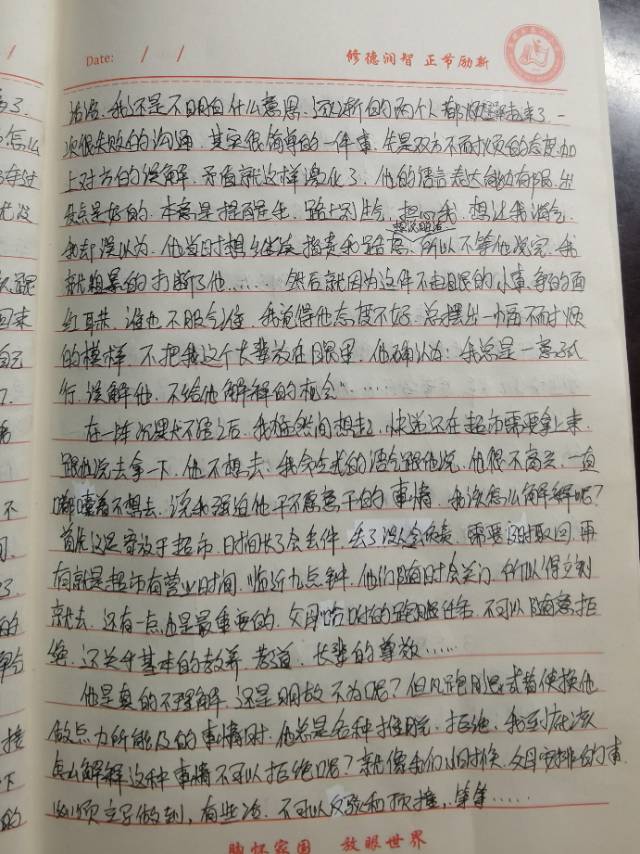 Date: / /
修德润智 正节励新
沽沽.我还是不明白什么意思.这以渐的两个人都烦躁起来了.一
次很失败的沟通.其实很简单的一件事.先是双方不耐烦的态度.加
上对方的误解.矛盾就这样激化了.他的语言表达能力有限.出
发点是好的.本意是提醒我.路上别生气.担心我.想让我消气.
我却误以为.他当时想继续指责我路怒.所以不等他说完.我
就粗暴的打断了他……然后就因为这件不起眼的小事.争的面
红耳赤.谁也不服气谁.我觉得他态度不好.总摆出一幅不耐烦
的模样.不把我这个长辈放在眼里.他确认为:我总是一意孤
行.误解他.不给他解释的机会"……
在一阵沉默不语之后.我猛然间想起.快递还在超市需要拿上来.
跟他说去拿一下.他不想去.我命令式的语气跟他说.他很不高兴.一直
嘟囔着不想去.说我强迫他干不愿意干的事情.我该怎么解释呢?
首先这是寄放于超市.时间长了会丢件.丢了没人会负责.需要及时取回.再
有就是超市有营业时间.临近九点钟.他们随时会关门.所以得立刻
就去.还有一点也是最重要的.父母给你的跑腿任务.不可以随意拒
绝.这关乎基本的教养.孝道.长辈的尊敬……
他是真的不理解.还是明故不为呢?但凡跑腿式着使换他
做点力所能及的事情时.他总是各种推脱.拒绝.我到底该
怎么解释这种事情不可以拒绝呢?就像我们小时候.父母安排的事
必须立写做到.有些话.不可以反驳和顶撞.等等……
胸怀家国 放眼世界